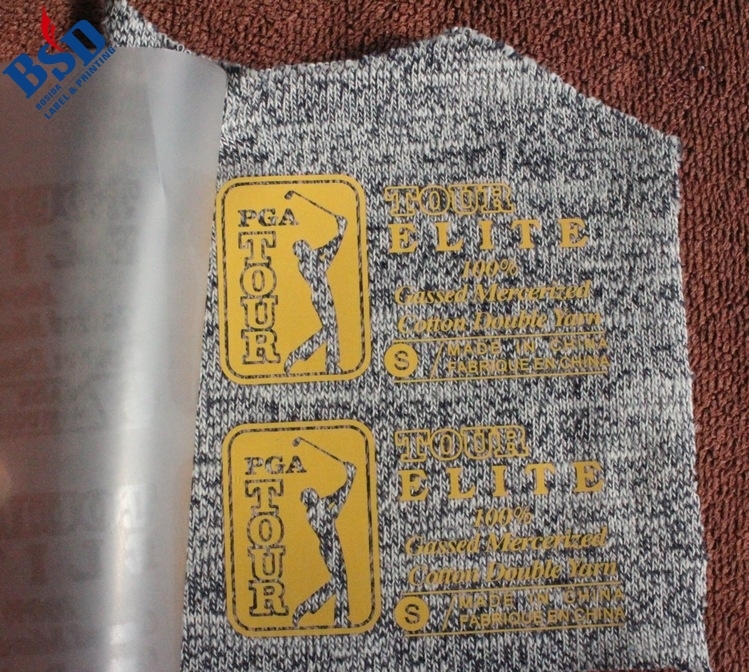 BSD
BOSIDA
LABEL & PRINTING
PGA
TOUR
TOUR
ELITE
100%
Gassed Mercerized
Cotton Double Yarn
S / MADE IN CHINA
FABRIQUE EN CHINA
PGA
TOUR
TOUR
ELITE
100%
Gassed Mercerized
Cotton Double Yarn
S / MADE IN CHINA
FABRIQUE EN CHINA